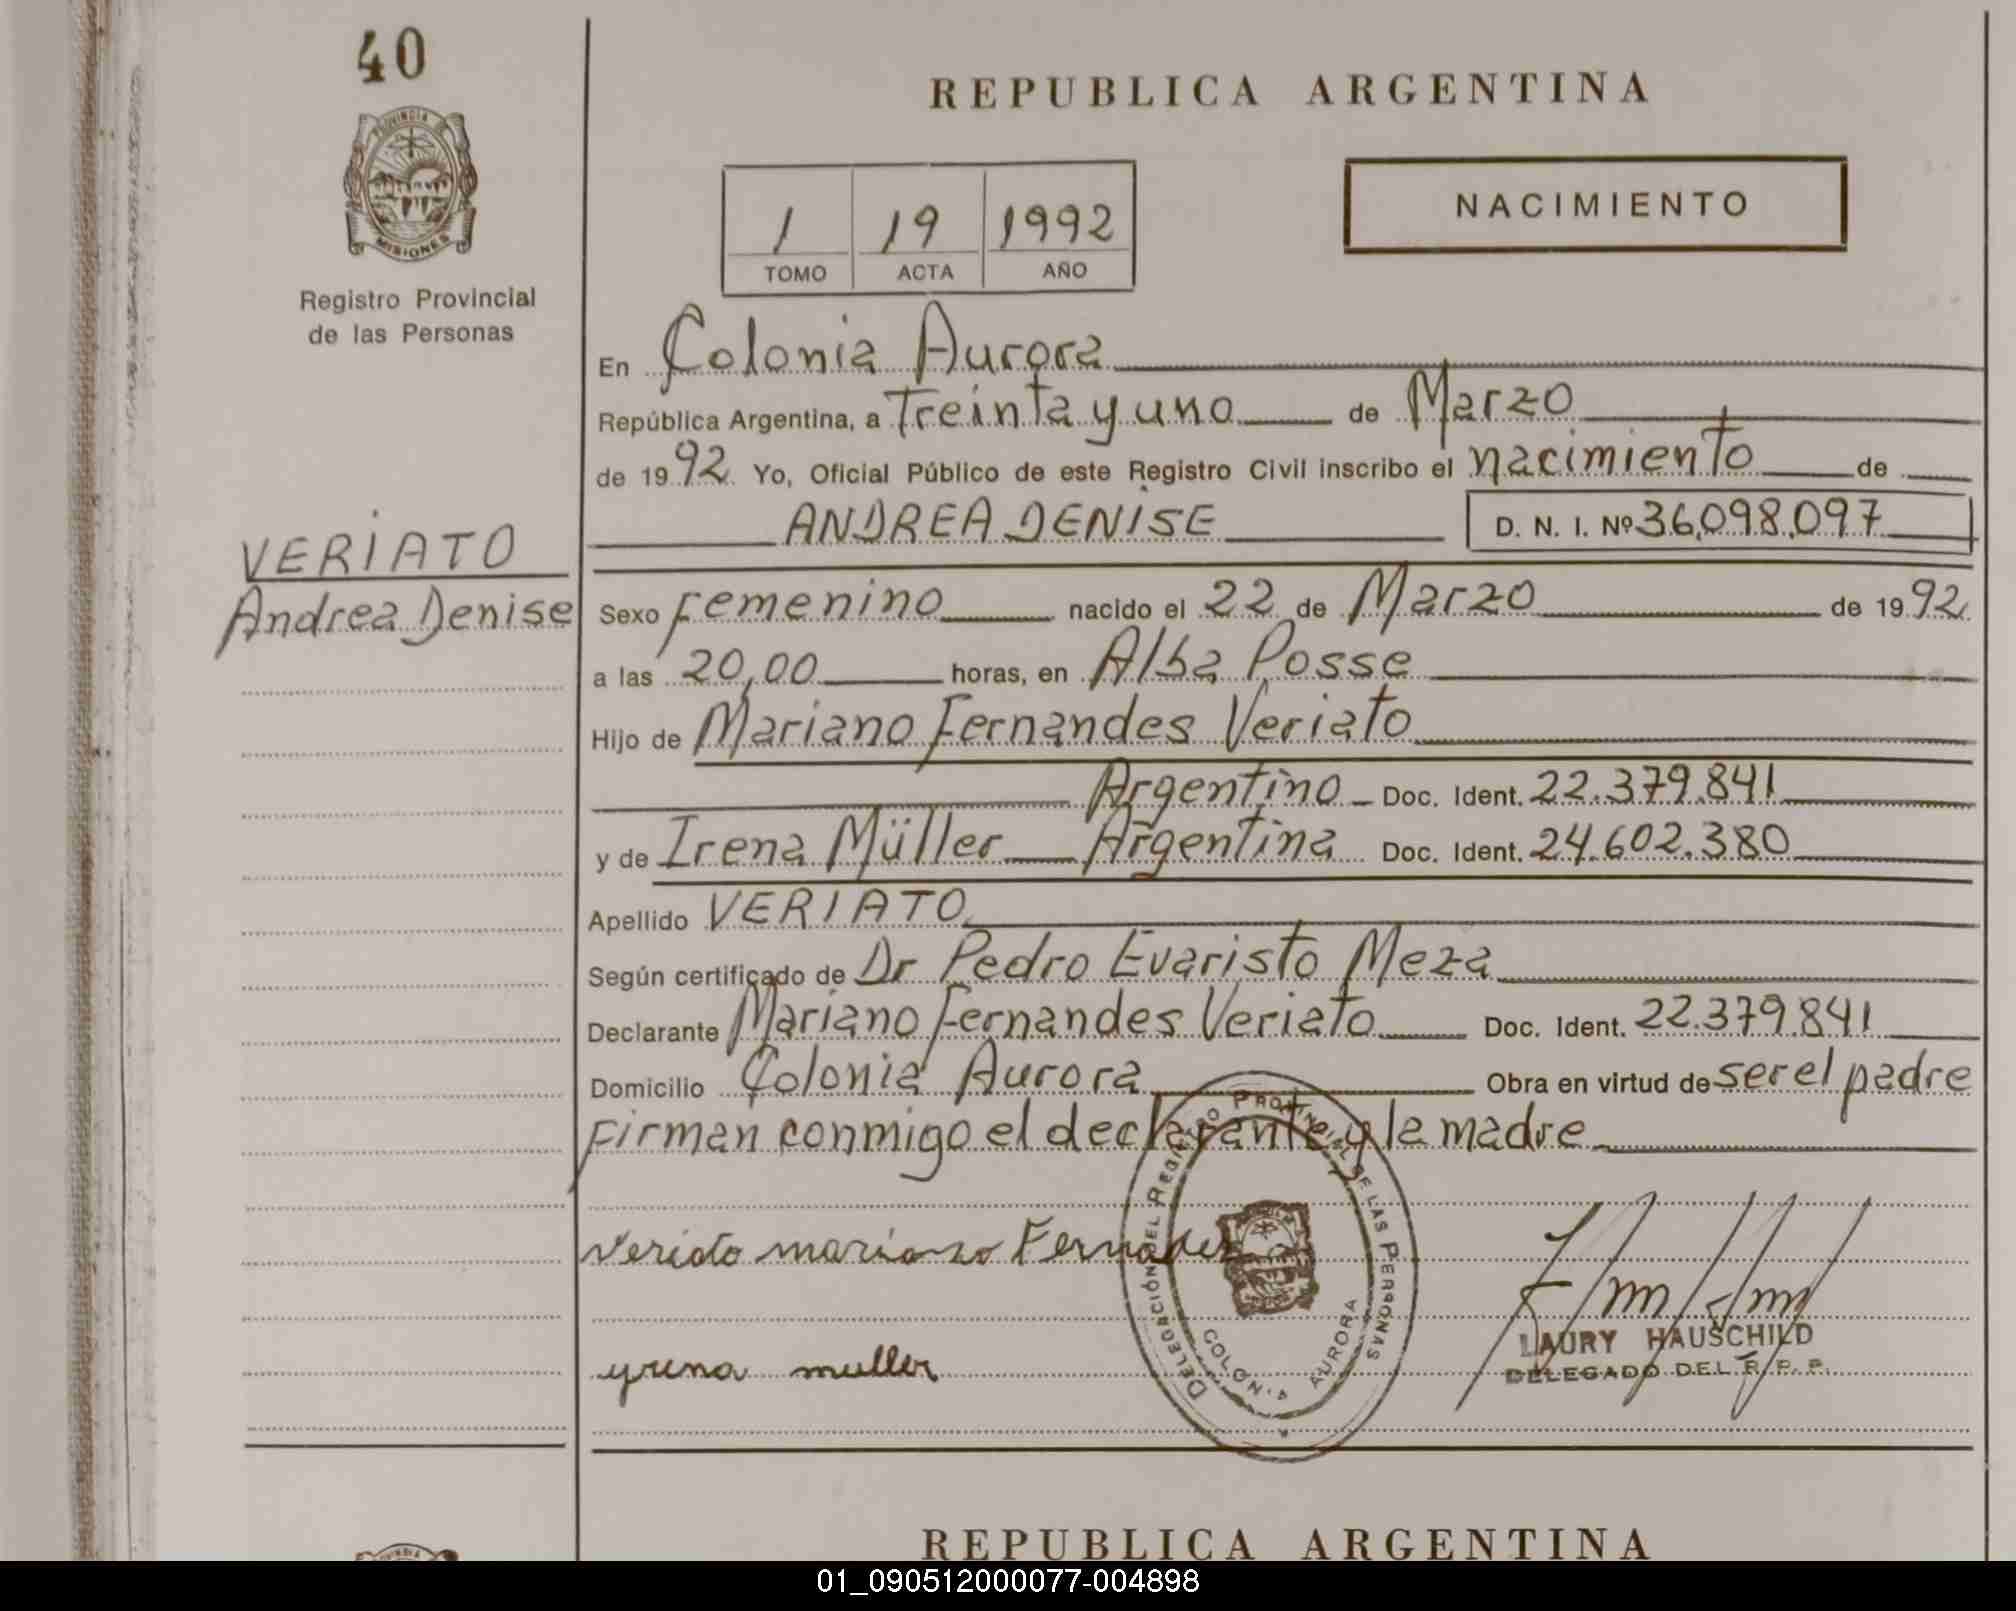 40
PROVINCIA DE
MISIONES
Registro Provincial
de las Personas
VERIATO
Andrea Denise
REPUBLICA ARGENTINA
1 19 1992
TOMO ACTA AÑO
NACIMIENTO
En Colonia Aurora
República Argentina, a Treinta y uno de Marzo
de 1992 Yo, Oficial Público de este Registro Civil inscribo el nacimiento de
ANDREA DENISE D. N. I. Nº 36,098,097
Sexo Femenino nacido el 22 de Marzo de 1992
a las 20,00 horas, en Alba Posse
Hijo de Mariano Fernandes Veriato
Argentino Doc. Ident. 22.379.841
y de Irena Müller Argentina Doc. Ident. 24.602.380
Apellido VERIATO
Según certificado de Dr Pedro Evaristo Meza
Declarante Mariano Fernandes Veriato Doc. Ident. 22.379.841
Domicilio Colonia Aurora Obra en virtud de ser el padre
Firman conmigo el declarante y la madre
DELEGACIÓN DEL REGISTRO PROVINCIAL DE LAS PERSONAS
COLONIA AURORA
Veriato mariano Fernandez
yrena muller
LAURY HAUSCHILD
DELEGADO DEL R. P. P.
REPUBLICA ARGENTINA
01_090512000077-004898